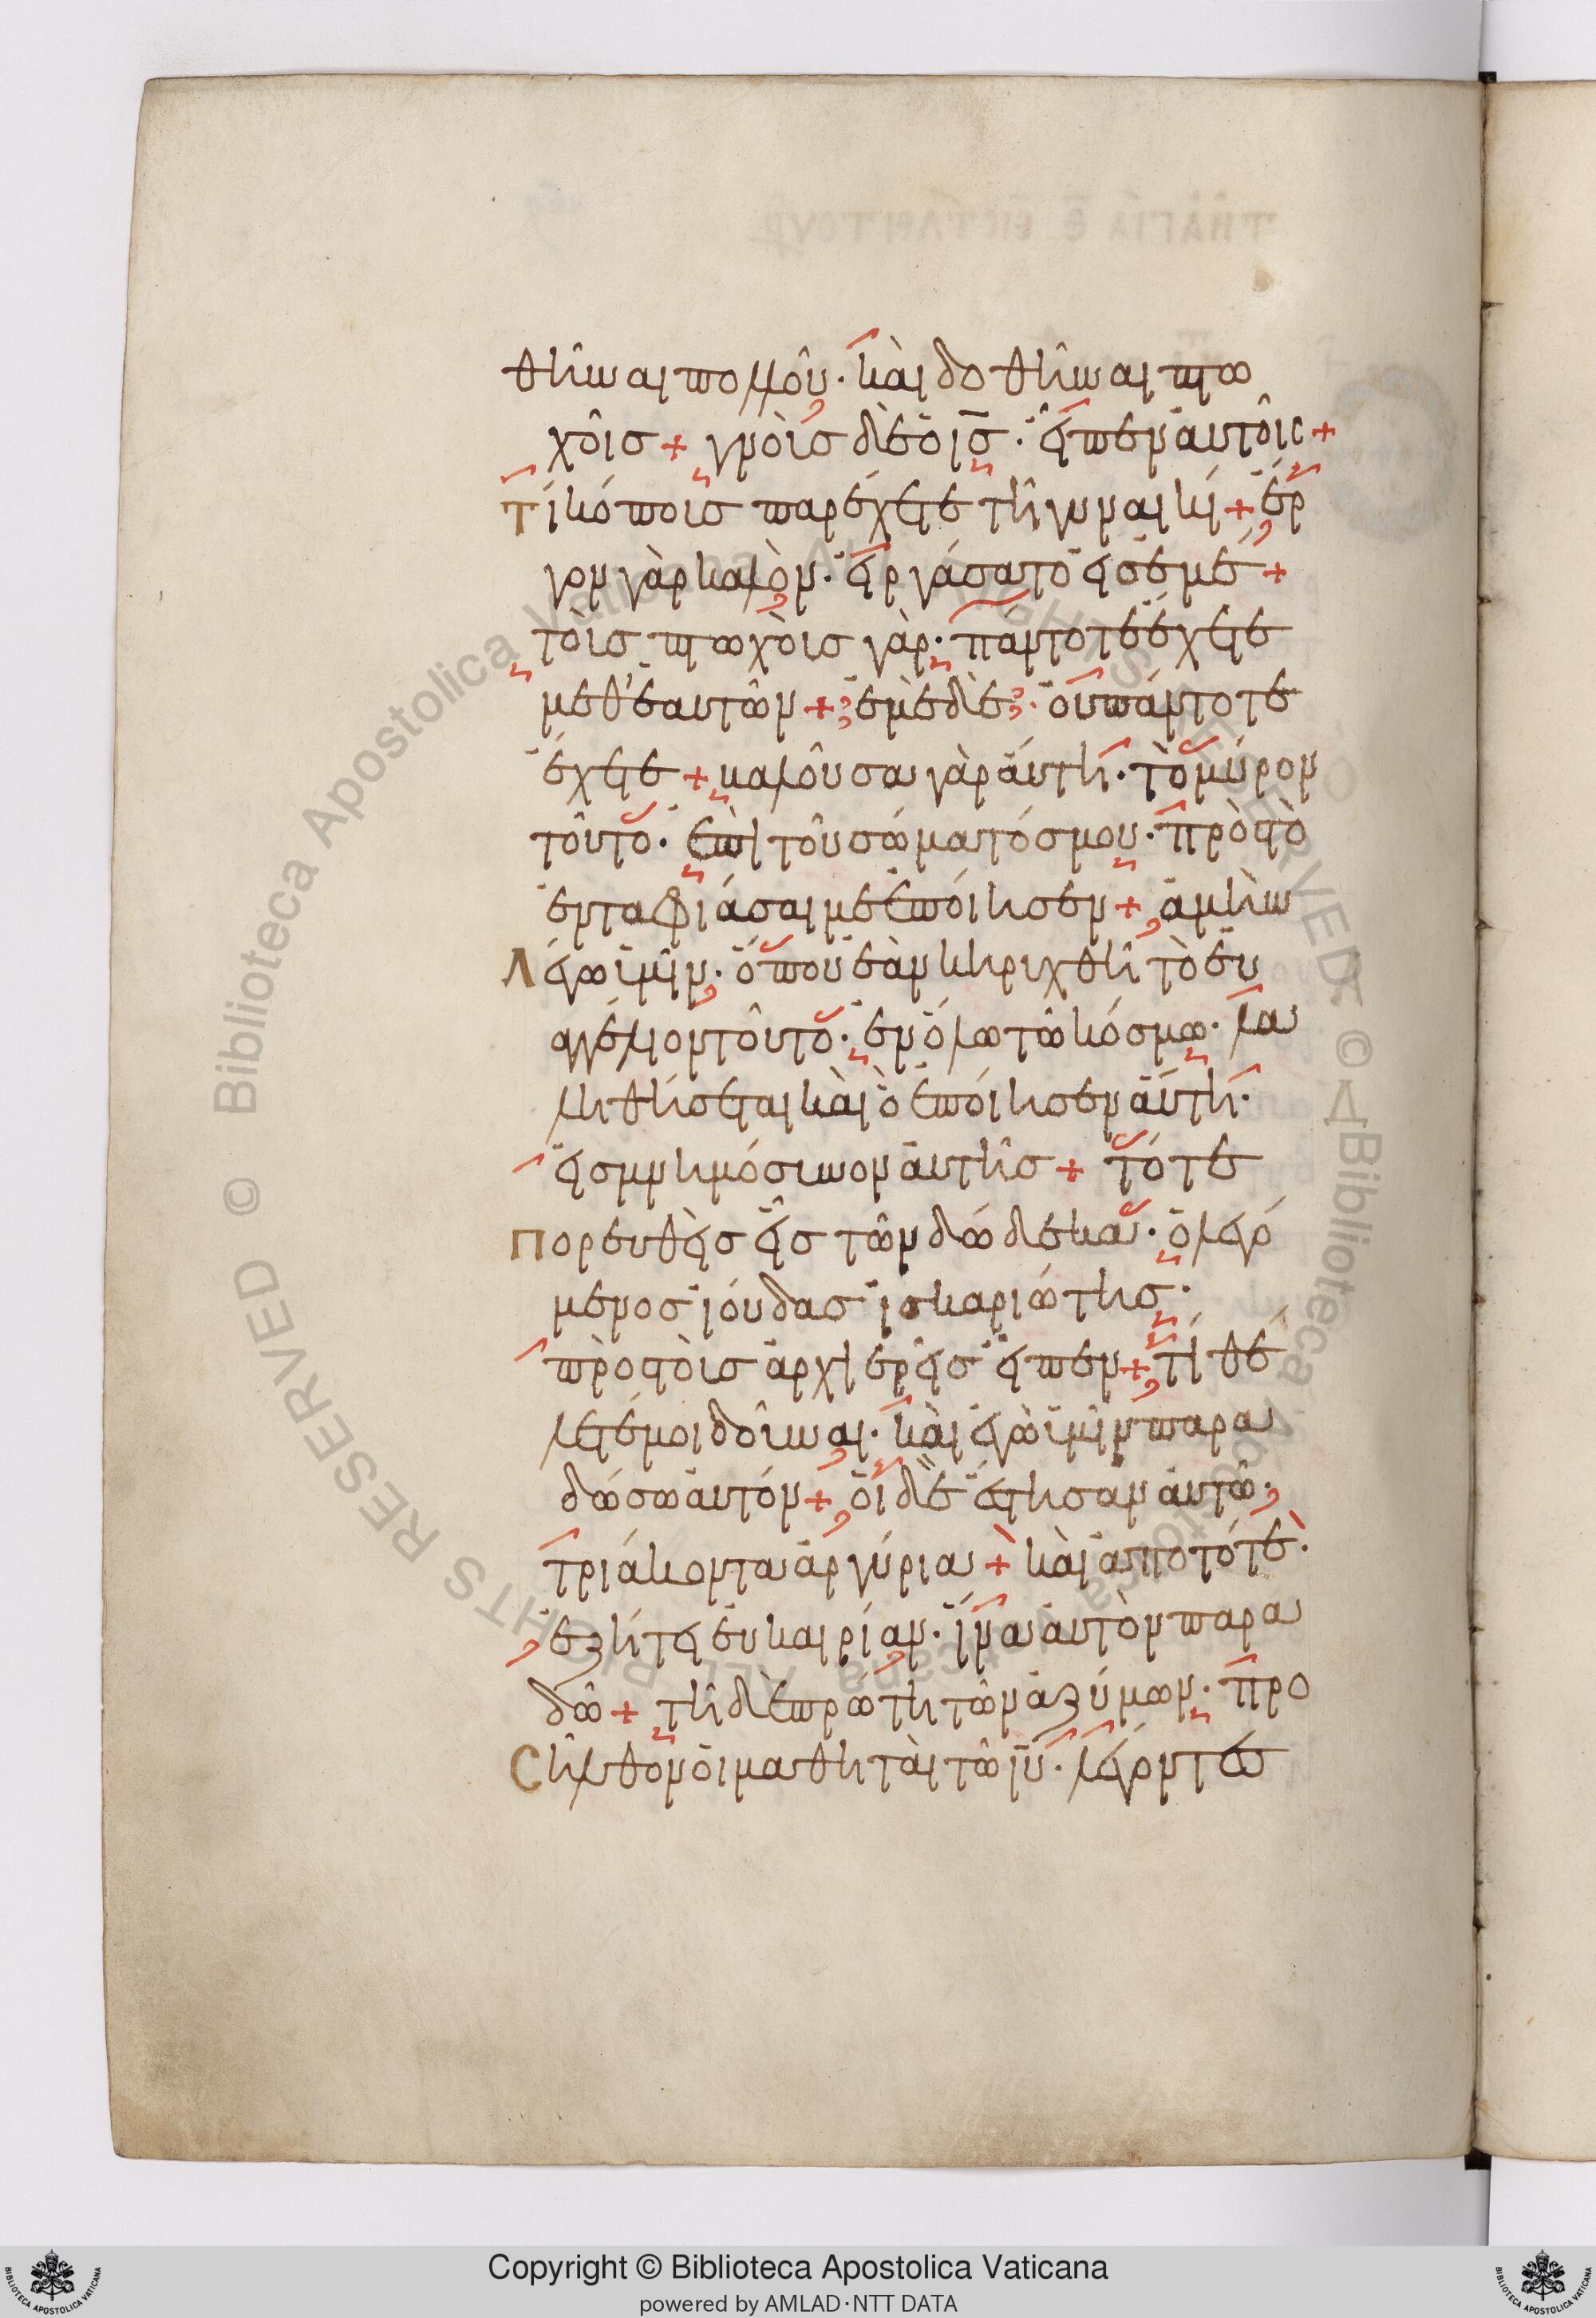 θῆναι πολλοῦ· καὶ δοθῆναι πτω
χοῖς + γνοὺς δὲ ὁ ις̅· εἶπεν αὐτοῖς +
Τί κόπους παρέχετε τῇ γυναικί + ἔρ
γον γὰρ καλὸν· εἰργάσατο εἰς ἐμέ +
τοὺς πτωχοὺς γὰρ· πάντοτε ἔχετε
μεθ' ἑαυτῶν + ἐμὲ δὲ· οὐ πάντοτε
ἔχετε + βαλοῦσα γὰρ αὕτη· τὸ μύρον
τοῦτο· ἐπὶ τοῦ σώματός μου· πρὸς τὸ
ἐνταφιάσαι με ἐποίησεν + ἀμὴν
Λέγω ὑμῖν· ὅπου ἐὰν κηρυχθῇ τὸ εὐ
αγγέλιον τοῦτο· ἐν ὅλω τῶ κόσμω· λα
ληθήσεται καὶ ὃ ἐποίησεν αὕτη·
εἰς μνημόσυνον αὐτῆς + τότε
Πορευθεὶς εἷς τῶν δώδεκα· ὁ λεγό
μενος ἰούδας ἰσκαριώτης·
πρὸς τοὺς ἀρχιερεῖς εἶπεν + τί θέ
λετέ μοι δοῦναι· καὶ ἐγὼ ὑμῖν παρα
δώσω αὐτόν + οἱ δὲ ἔστησαν αὐτῶ·
τριάκοντα ἀργύρια + καὶ ἀπὸ τότε·
ἐζήτει εὐκαιρίαν· ἵνα αὐτὸν παρα
δῶ + τῇ δὲ πρώτη τῶν ἀζύμων· προ
Σῆλθον οἱ μαθηταὶ τῶ ιυ̅· λέγοντες
Copyright © Biblioteca Apostolica Vaticana
powered by AMLAD·NTT DATA